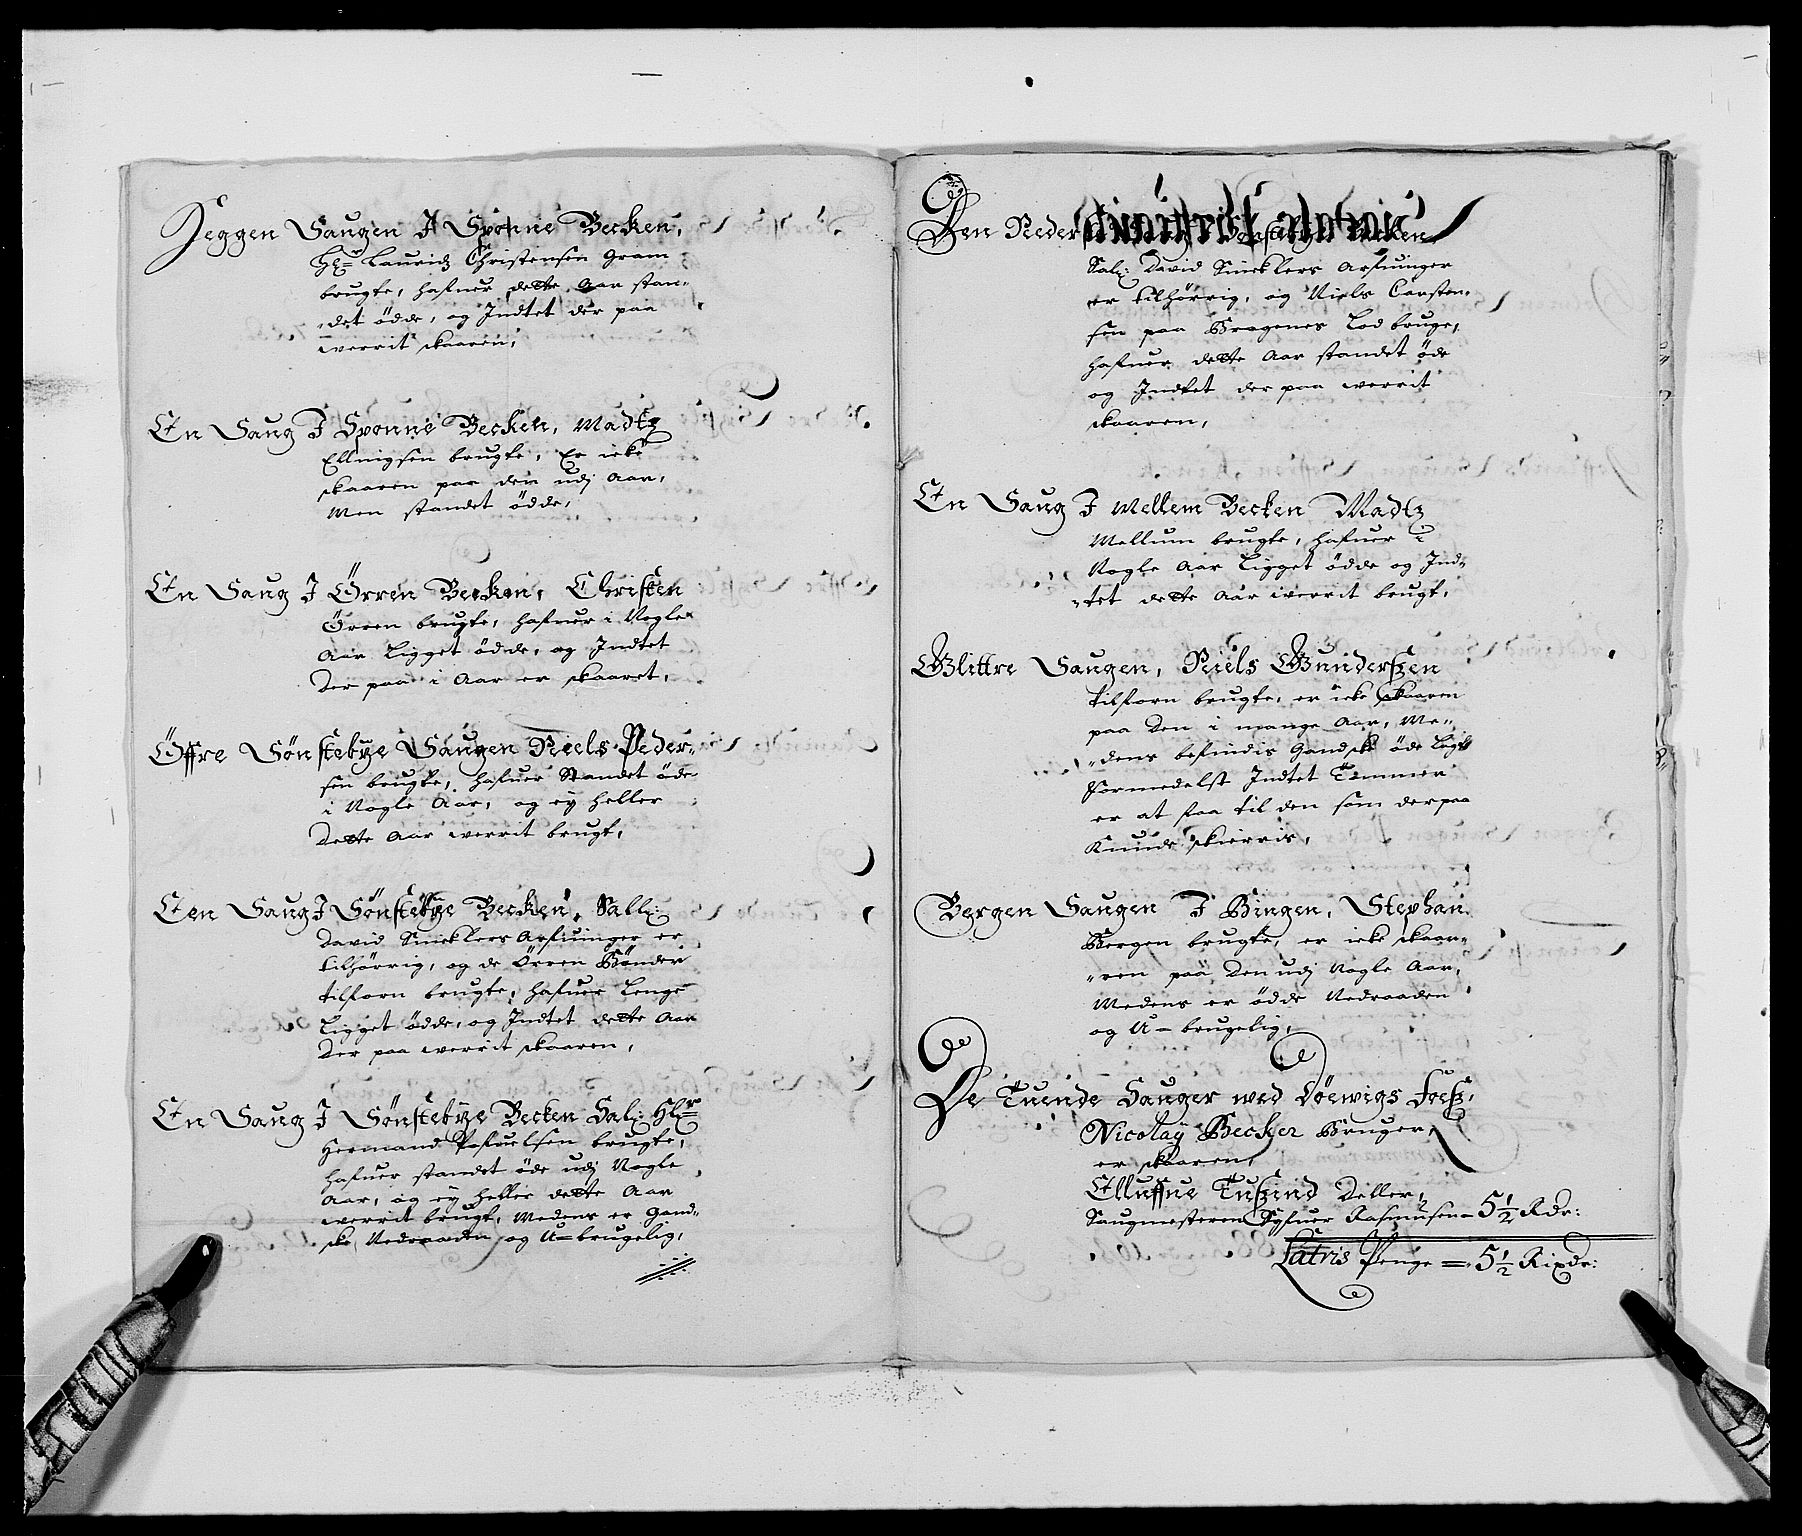 Jeggen Saugen I Sponne Becken,
Hr: Lauridz Christensen Gram
brugte, hafuer dette Aar stan-
det ödde, og Indtet der paa
werrit skaaren,
En Saug I Sponne Becken, Madtz
Ellingsen brugte, Er icke
skaaren paa den udj Aar,
Men standet ödde,
En Saug I Örren Becken, Christen
Örren brugte, hafuer i Nogle
Aar Ligget ödde, og Indtet
Der paa i Aar er skaaret,
Öffre Sönstebÿe Saugen Niels Peder-
sen brugte, hafuer Standet öde
i Nogle Aar, og eÿ heller
Dette Aar werrit brugt,
Een Saug I Sönstebÿe Becken, Sall:
David Sincklers Arfuinger er
tilhörrig, og de Örren Bönder
tilforn brugte, hafuer Lenge
Ligget ödde, og Indtet dette Aar
Der paa werrit skaaren,
En Saug I Sönstebÿe Becken Sal: Hr:
Hermand Pofuelsen brugte,
hafuer standet öde udj Nogle
Aar, og eÿ heller dette Aar
werrit brugt, Medens er Gand-
ske Nedraaden og U-brugelig,
Den Neder Becken
Sal: David Sincklers Arfuinger
er tilhörrig, og Niels Carsten-
sen paa Bragenes Lod bruge,
hafuer dette Aar standet öde
og Indtet der paa werrit
skaaren,
En Saug I Mellem Becken Madtz
Mellum brugte, hafuer i
Nogle Aar Ligget ödde og Ind-
tet dette Aar werrit brugt,
Glittre Saugen, Niels Gunderszen
tilforn brugte, er icke skaaren
paa Den i mange Aar, Me-
dens befindis Gandske öde Ligt
Formedelst Indtet Tömmer
er at faa til den som derpaa
Kunde skierris,
Bergen Saugen I Bingen, Stephan
Bergen brugte, er icke skaar-
ren paa Den udj Nogle Aar,
Medens er ödde Nedraaden
og U-brugelig,
De Tuende Sauger wed Döewigs Foesz,
Nicolaÿ Becker Bruger,
er skaaren,
Elluffue Tuszind Deller,
Saugmesteren Rasmusen - 5½ Rdr:
Latris Penge = 5½ Rixdr: